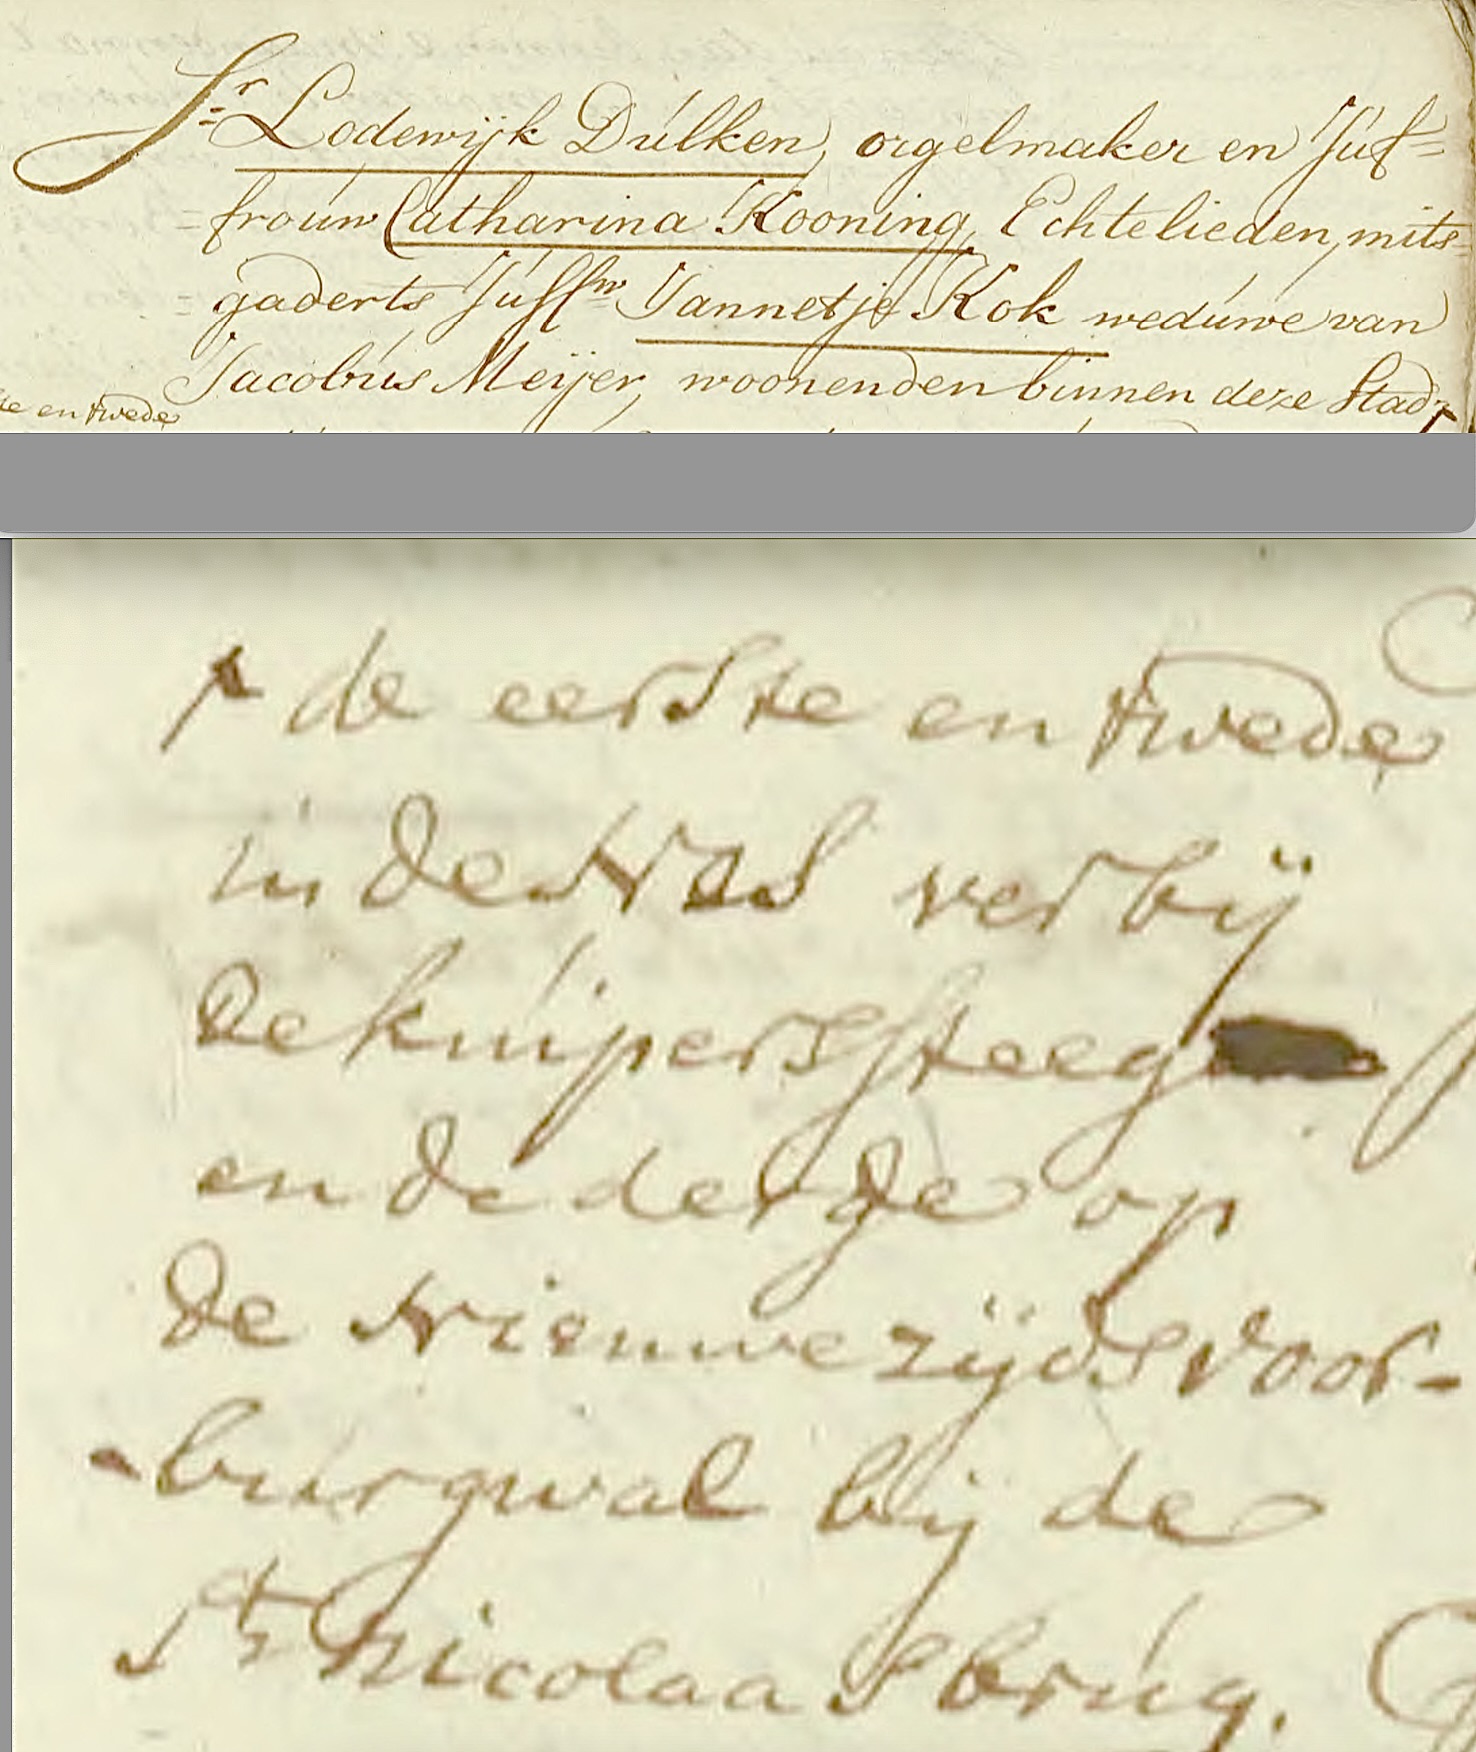 Sr. Lodewijk Dúlken, orgelmaker en Júf=
=froúw Catharina Kooning, Echtelieden, mits=
=gaderts Júffw. Jannetje Kok wedúwe van
Jacobús Meijer, woonenden binnen deze Stad,
te en twede
de eerste en twede
in de Nes verbij
de kúiperssteeg
en de derde op
de Nieuwezijdsvoor-
-búrgwal bij de
St. Nicolaasbrúg.